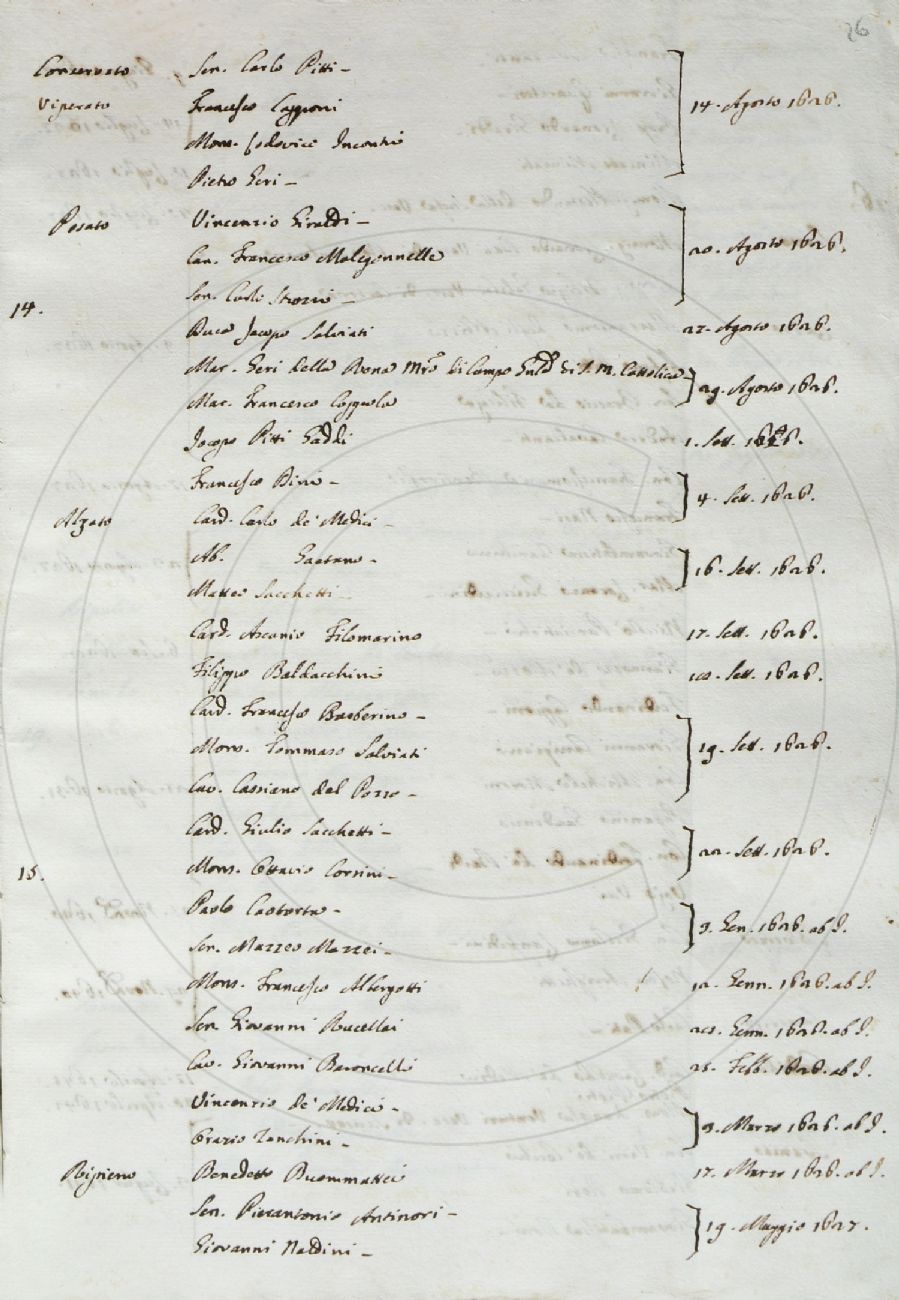 26
Conservato Sen. Carlo Pitti - 14. Agosto 1626.
Viperato Francesco Capponi
Mons. Lodovico Incontri
Pietro Geri -
Posato Vincenzio Giraldi - 20. Agosto 1626.
Can. Francesco Malegonnelle
Sen. Carlo Strozzi -
14.
Duca Jacopo Salviati 27. Agosto 1626.
Mar. Geri della Rena Mro. di Campo Gnle. di S. M. Cattolica - 29. Agosto 1626.
Mar. Francesco Coppola
Jacopo Pitti Gaddi 1. Sett. 1626.
Francesco Dini - 4. Sett. 1626.
Alzato Card. Carlo de' Medici -
Ab. Gaetano - 16. Sett. 1626.
Matteo Sacchetti -
Card. Ascanio Filomarino 17. Sett. 1626.
Filippo Baldacchini 18. Sett. 1626.
Card. Francesco Barberino - 19. Sett. 1626.
Mons. Tommaso Salviati
Cav. Cassiano dal Pozzo -
Card. Giulio Sacchetti - 22. Sett. 1626.
15. Mons. Ottavio Corsini -
Paolo - 9. Gen. 1626. ab I.
Sen. Mazzeo Mazzei -
Mons. Francesco Albergotti 12. Genn. 1626. ab I.
Sen. Giovanni Rucellai 20. Genn. 1626. ab I.
Cav. Giovanni Baroncelli 26. Febb. 1626. ab I.
Vincenzio de' Medici - 9. Marzo 1626. ab I.
Orazio Zanchini -
Ripieno Benedetto Buommattei 17. Marzo 1626. ab I.
Sen. Pierantonio Antinori - 19. Maggio 1627.
Giovanni Naldini -